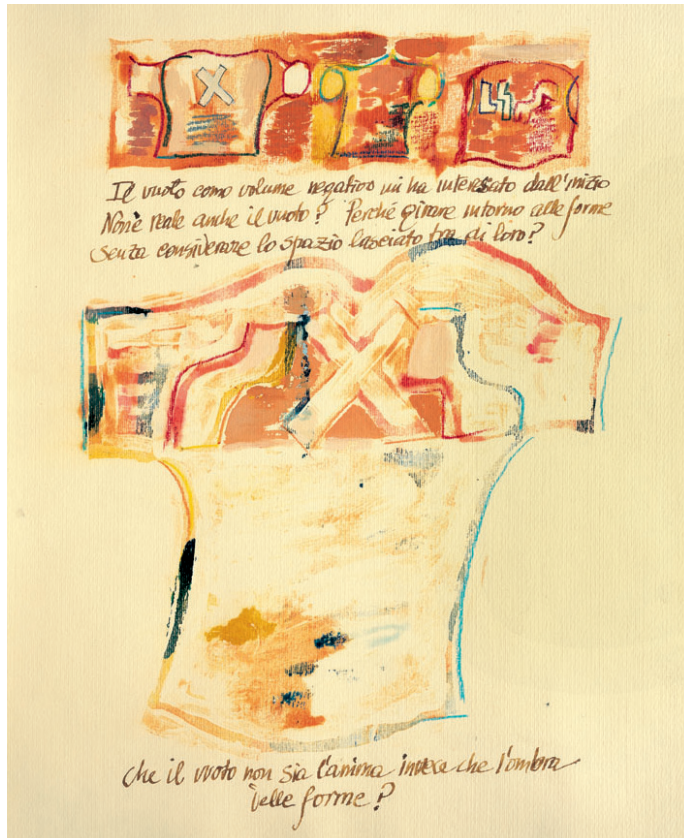 Il vuoto como volume negativo mi ha interessato dall'inizio
Non'è reale anche il vuoto? Perché girare intorno alle forme
senza considerare lo spazio lasciato tra di loro?
Che il vuoto non sia l'anima invece che l'ombra
delle forme?